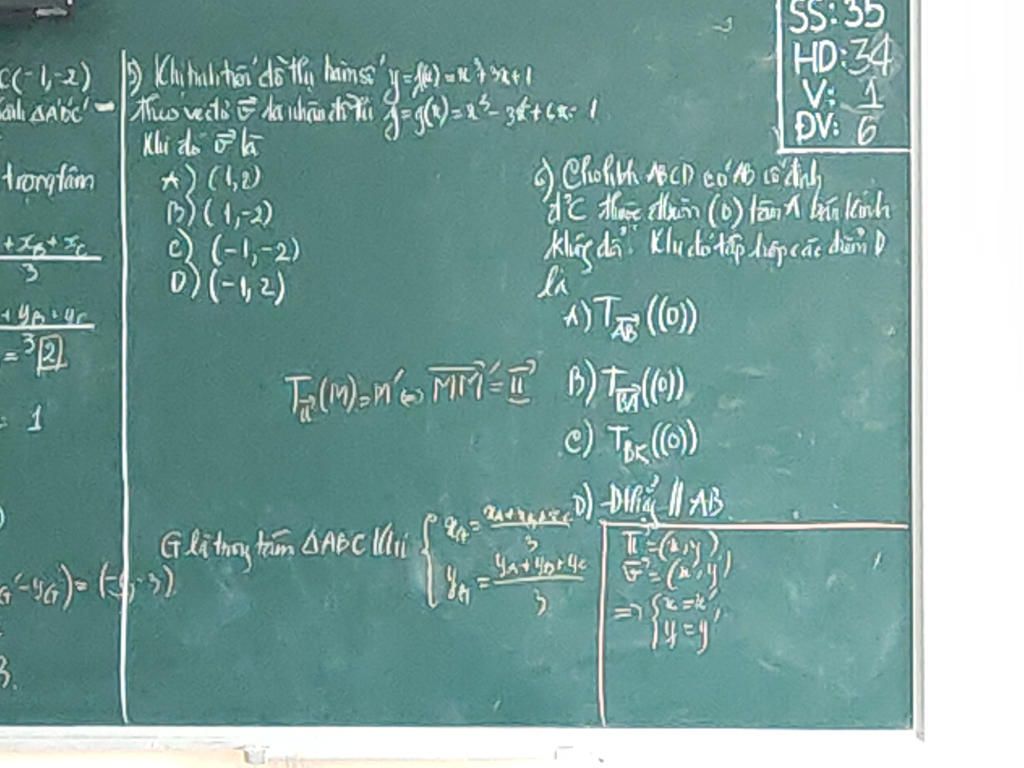 C(-1,-2)
ΔA'B'C'
trọng tâm
+ x_B + x_C
3
+ y_B + y_C
3
= 2
= 1
G' - y_G) = (-5, -3)
5) Khi tịnh tiến đồ thị hàm số y = f(x) = x³ + 3x + 1
theo vectơ v⃗ ta nhận đồ thị y = g(x) = x³ - 3x² + 6x - 1
Khi đó v⃗ là
A) (1,2)
B) (1,-2)
C) (-1,-2)
D) (-1,2)
T_u⃗(M) = M' ⇔ MM'⃗ = u⃗
G là trọng tâm ΔABC khi { x_G = x_A + x_B + x_C / 3
y_G = y_A + y_B + y_C / 3
SS: 35
HD: 34
V: 1
ĐV: 6
6) Cho hbh ABCD có AB cố định
đ' C thuộc đtròn (O) tâm A bán kính
không đổi. Khi đó tập hợp các điểm D
là
A) T_AB⃗((O))
B) T_BA⃗((O))
C) T_BK((O))
D) Đthẳng // AB
u⃗ = (x, y)
v⃗ = (x', y')
=> { x = x'
y = y'